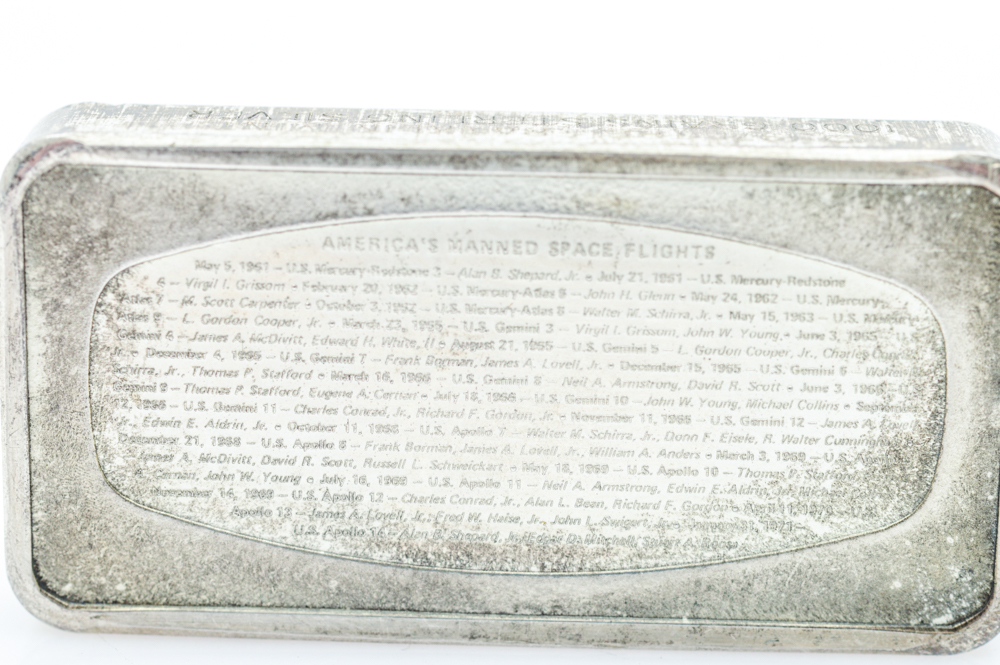 AMERICA'S MANNED SPACE FLIGHTS
May 5, 1961 — U.S. Mercury-Redstone 3 — Alan B. Shepard, Jr. • July 21, 1961 — U.S. Mercury-Redstone
4 — Virgil I. Grissom • February 20, 1962 — U.S. Mercury-Atlas 6 — John H. Glenn • May 24, 1962 — U.S. Mercury-
Atlas 7 — M. Scott Carpenter • October 3, 1962 — U.S. Mercury-Atlas 8 — Walter M. Schirra, Jr. • May 15, 1963 — U.S. Mercury-
Atlas 9 — L. Gordon Cooper, Jr. • March 23, 1965 — U.S. Gemini 3 — Virgil I. Grissom, John W. Young • June 3, 1965 — U.S.
Gemini 4 — James A. McDivitt, Edward H. White, II • August 21, 1965 — U.S. Gemini 5 — L. Gordon Cooper, Jr., Charles Conrad,
Jr. • December 4, 1965 — U.S. Gemini 7 — Frank Borman, James A. Lovell, Jr. • December 15, 1965 — U.S. Gemini 6 — Walter M.
Schirra, Jr., Thomas P. Stafford • March 16, 1966 — U.S. Gemini 8 — Neil A. Armstrong, David R. Scott • June 3, 1966 — U.S.
Gemini 9 — Thomas P. Stafford, Eugene A. Cernan • July 18, 1966 — U.S. Gemini 10 — John W. Young, Michael Collins • September
12, 1966 — U.S. Gemini 11 — Charles Conrad, Jr., Richard F. Gordon, Jr. • November 11, 1966 — U.S. Gemini 12 — James A. Lovell,
Jr., Edwin E. Aldrin, Jr. • October 11, 1968 — U.S. Apollo 7 — Walter M. Schirra, Jr., Donn F. Eisele, R. Walter Cunningham
December 21, 1968 — U.S. Apollo 8 — Frank Borman, James A. Lovell, Jr., William A. Anders • March 3, 1969 — U.S. Apollo
James A. McDivitt, David R. Scott, Russell L. Schweickart • May 18, 1969 — U.S. Apollo 10 — Thomas P. Stafford,
Cernan, John W. Young • July 16, 1969 — U.S. Apollo 11 — Neil A. Armstrong, Edwin E. Aldrin, Jr., Michael
November 14, 1969 — U.S. Apollo 12 — Charles Conrad, Jr., Alan L. Bean, Richard F. Gordon • April 11, 1970 — U.S.
Apollo 13 — James A. Lovell, Jr., Fred W. Haise, Jr., John L. Swigert, Jr. • January 31, 1971 —
U.S. Apollo 14 — Alan B. Shepard, Jr., Edgar D. Mitchell, Stuart A. Roosa